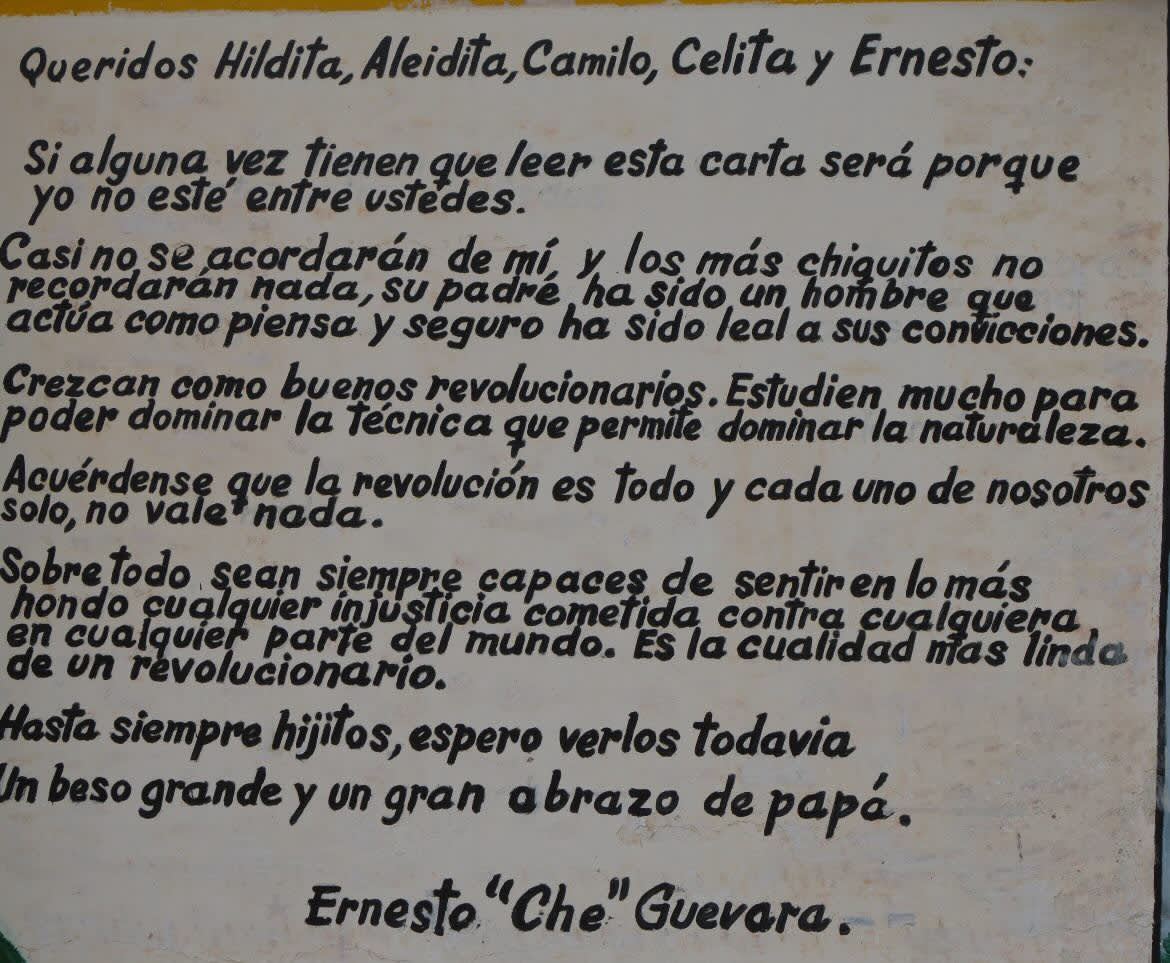 Queridos Hildita, Aleidita, Camilo, Celita y Ernesto:
Si alguna vez tienen que leer esta carta será porque
yo no esté entre ustedes.
Casi no se acordarán de mí, y los más chiquitos no
recordarán nada, su padre ha sido un hombre que
actúa como piensa y seguro ha sido leal a sus convicciones.
Crezcan como buenos revolucionarios. Estudien mucho para
poder dominar la técnica que permite dominar la naturaleza.
Acuérdense que la revolución es todo y cada uno de nosotros
solo, no vale nada.
Sobre todo sean siempre capaces de sentir en lo más
hondo cualquier injusticia cometida contra cualquiera
en cualquier parte del mundo. Es la cualidad mas linda
de un revolucionario.
Hasta siempre hijitos, espero verlos todavia
Un beso grande y un gran abrazo de papá.
Ernesto "Che" Guevara.